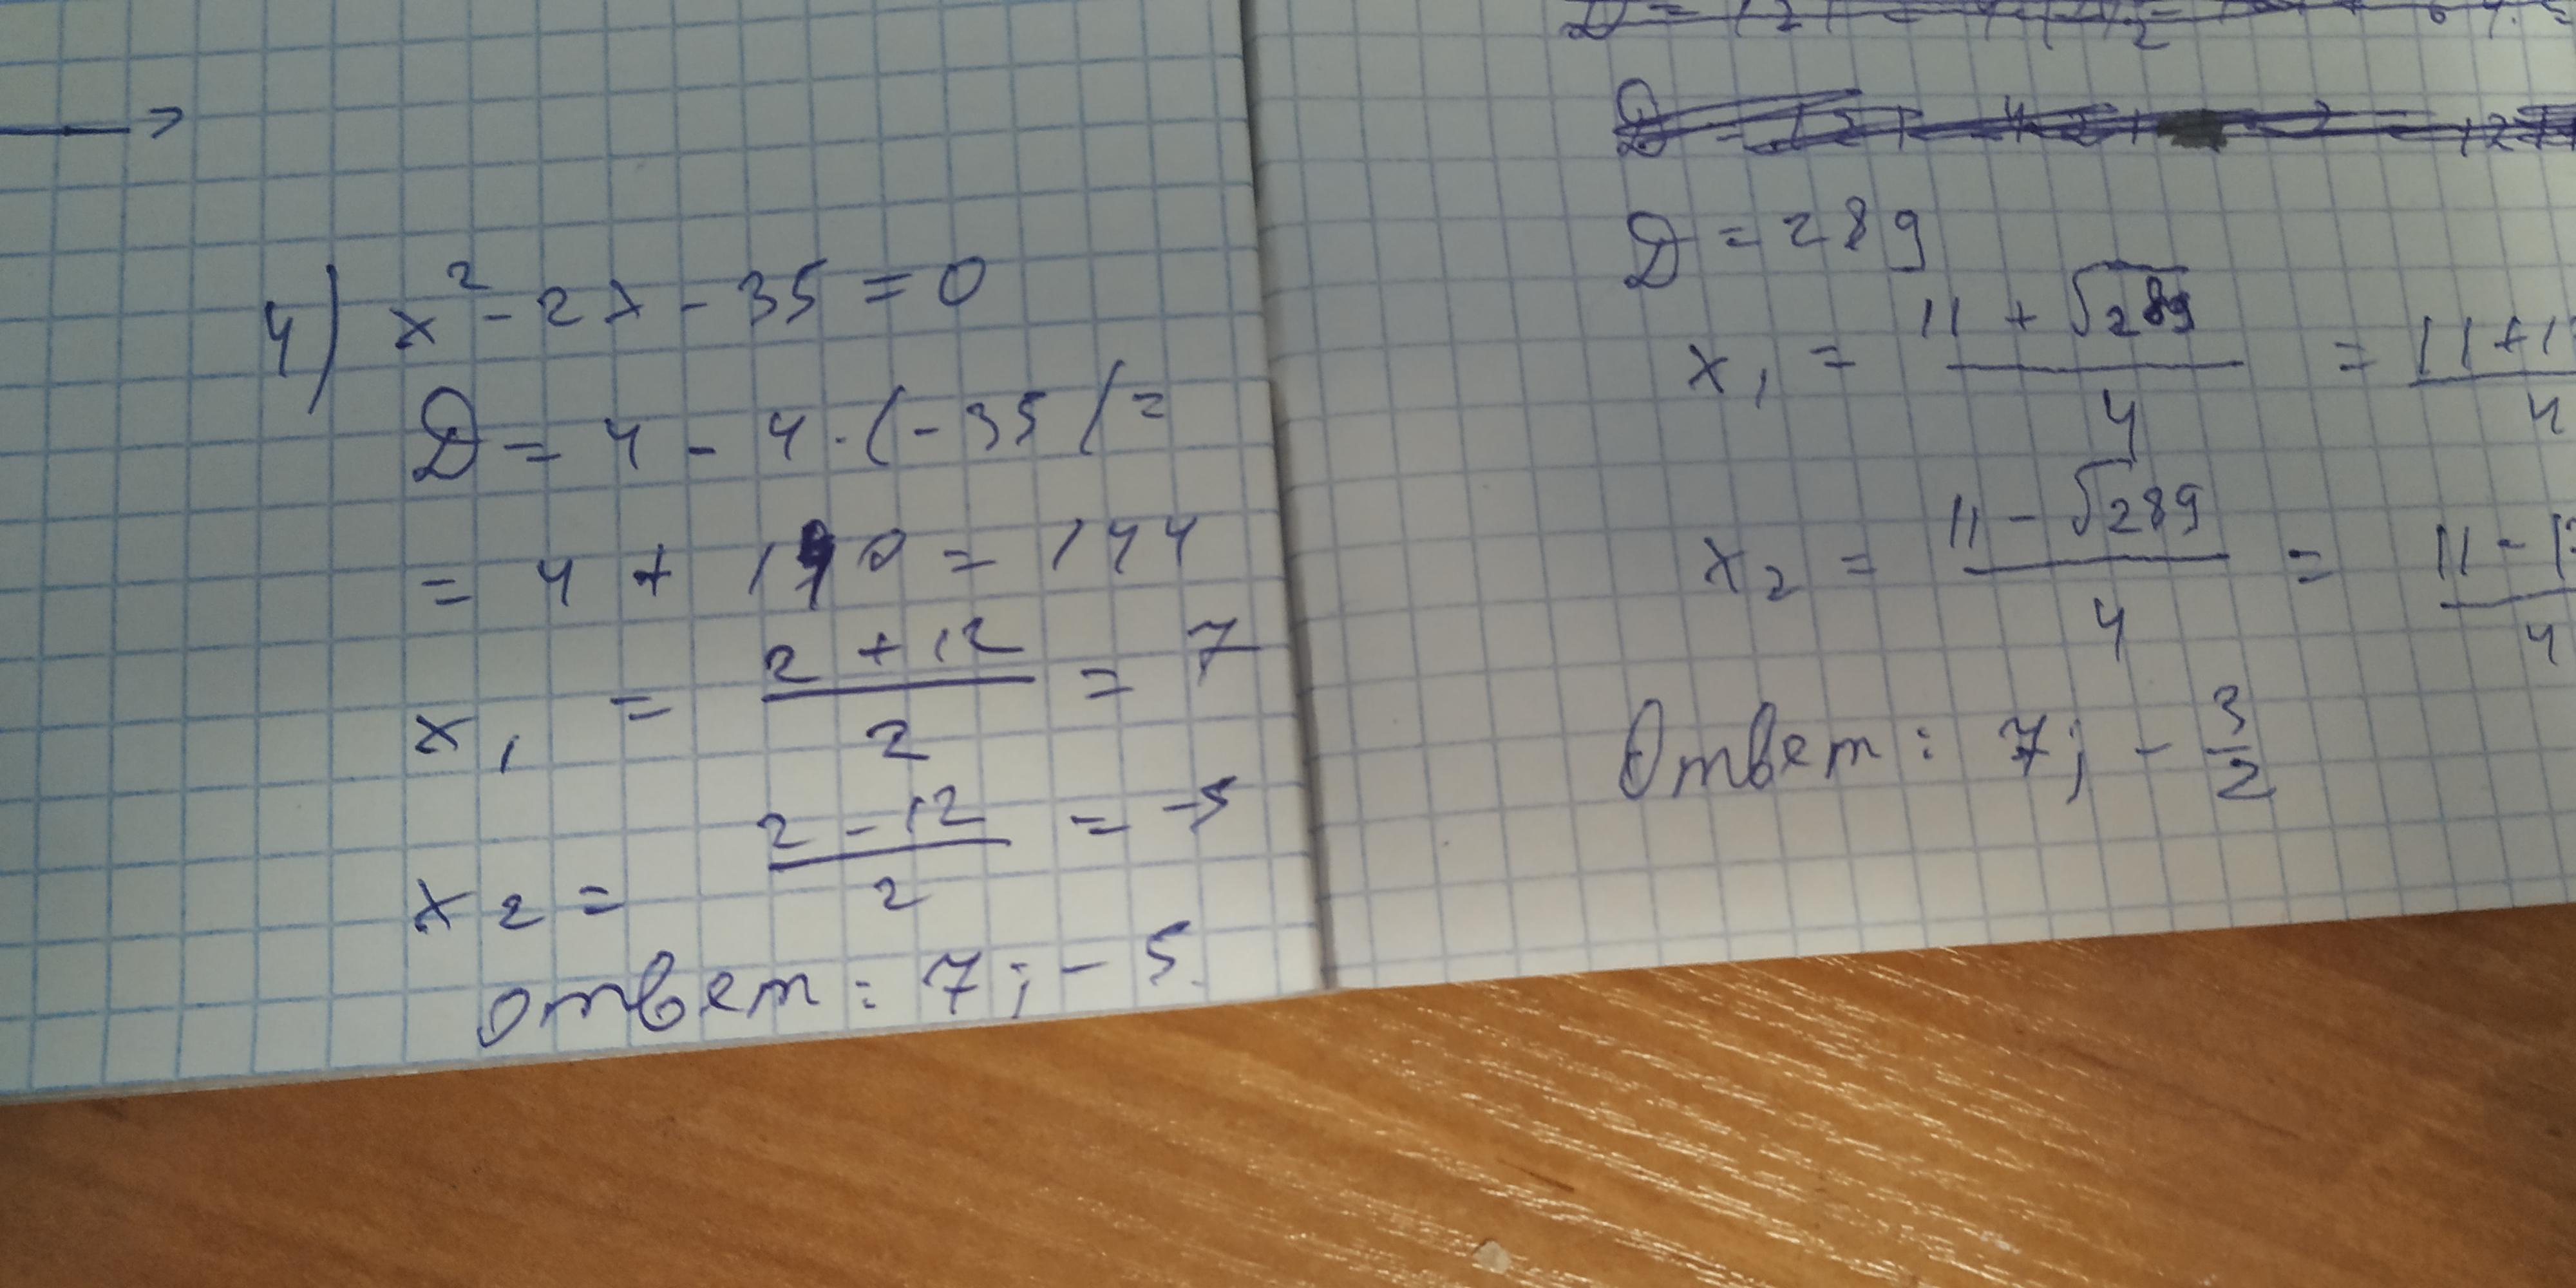 4) x² - 2x - 35 = 0
D = 4 - 4 · (-35) =
= 4 + 140 = 144
x₁ = (2 + 12)/2 = 7
x₂ = (2 - 12)/2 = -5
Ответ: 7; -5.
D = 289
x₁ = (11 + √289)/4 = (11 + 1)/4
x₂ = (11 - √289)/4 = (11 - 1)/4
Ответ: 7; - 3/2